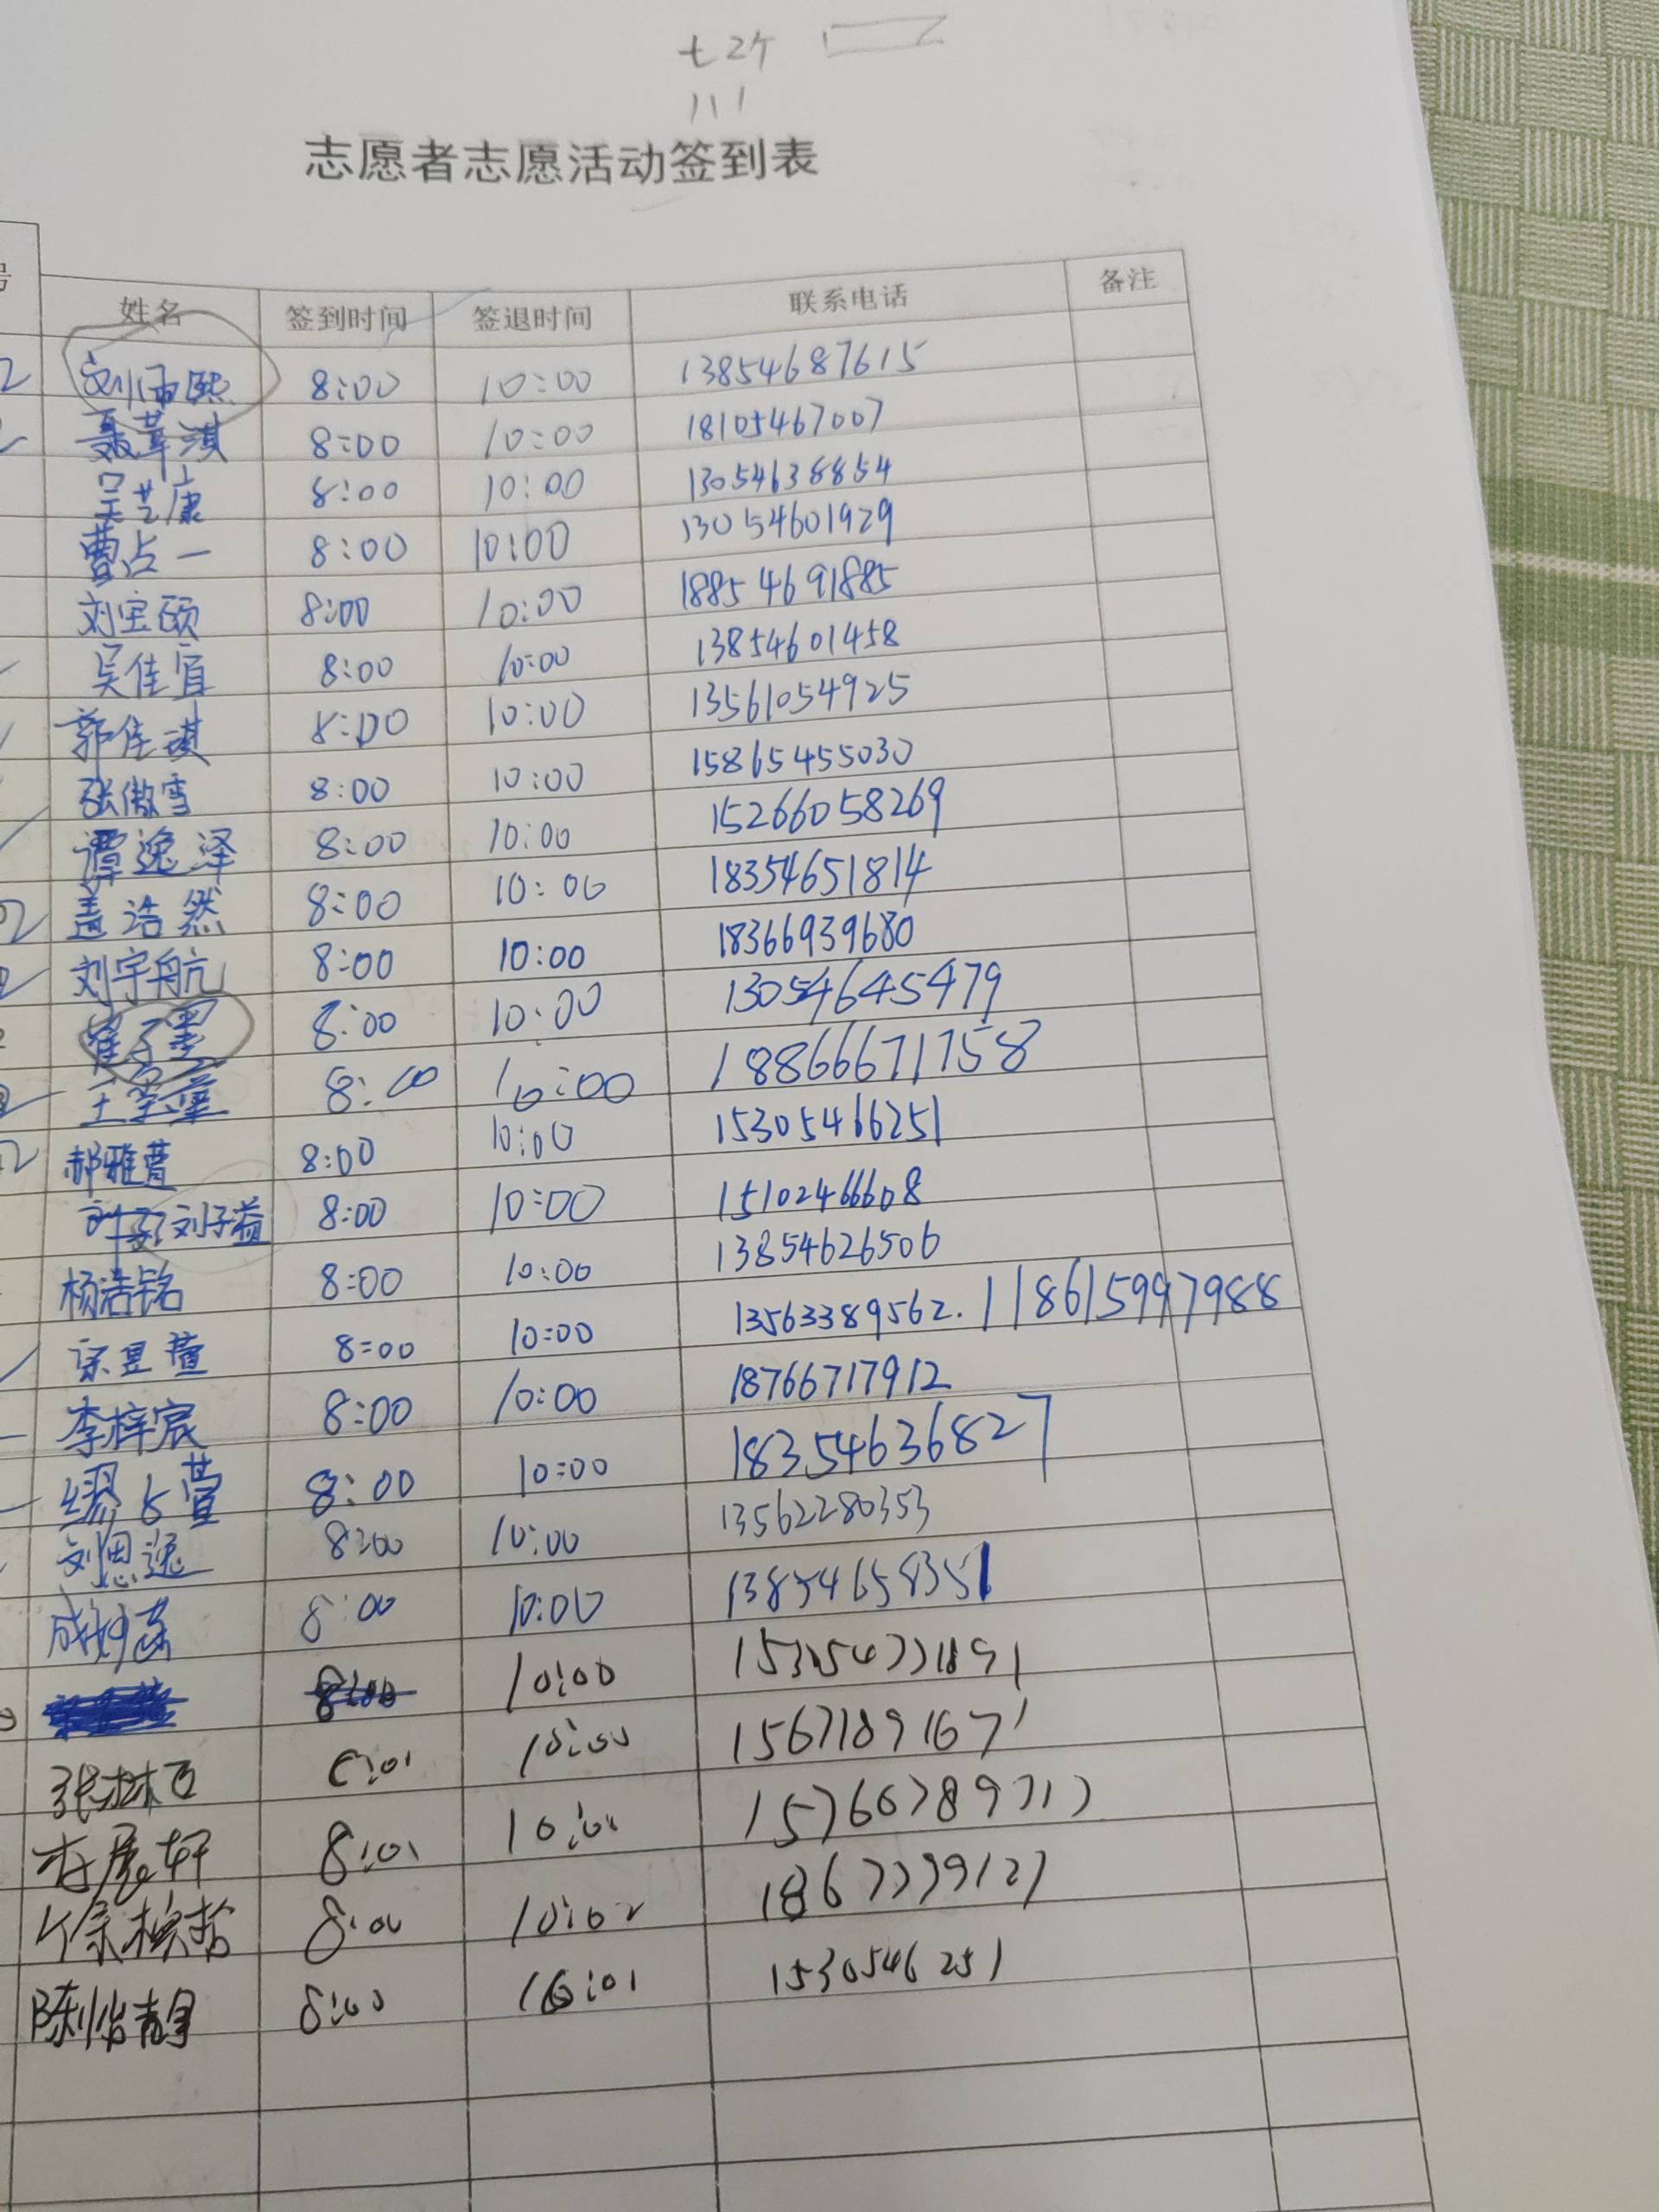 七2个
志愿者志愿活动签到表
号 姓名 签到时间 签退时间 联系电话 备注
刘雨熙 8:00 10:00 13854687615
聂苇淇 8:00 10:00 18105467007
吴芝康 8:00 10:00 13054638854
曹占一 8:00 10:00 13054601929
刘宝颐 8:00 10:00 18854691885
吴佳宜 8:00 10:00 13854601458
郭佳琪 8:00 10:00 13561054925
张傲雪 8:00 10:00 15865455030
谭逸泽 8:00 10:00 15266058269
盖浩然 8:00 10:00 18354651814
刘宇航 8:00 10:00 18366939680
崔子墨 8:00 10:00 13054645479
8:00 10:00 18866671758
郝雅萱 8:00 10:00 15305466251
刘子益 8:00 10:00 15102466608
杨浩铭 8:00 10:00 13854626506
8:00 10:00 13563389562. 118615997988
李梓宸 8:00 10:00 18766717912
8:00 10:00 18354636827
刘恩逸 8:00 10:00 13562280353
8:00 10:00 13854658351
8:00 10:00
张林
8:01
8:00 10:02
陈怡静 8:00 10:01 1530546251